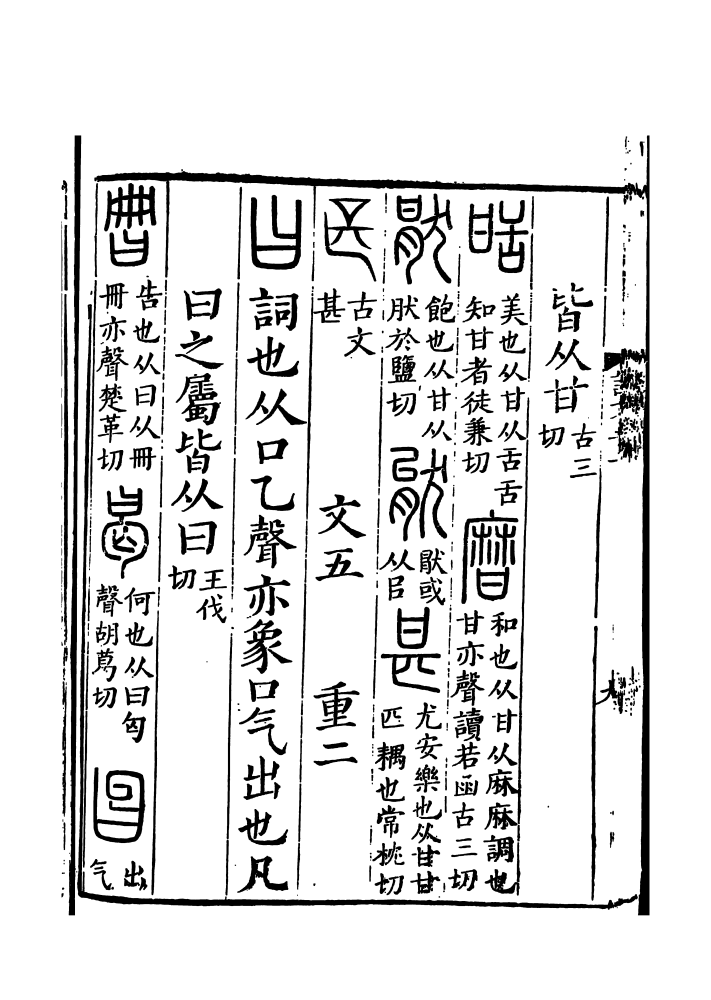 皆从甘古三切
𤯍美也从甘从舌舌知甘者徒兼切 𤯌和也从甘从麻麻調也甘亦聲讀若函古三切
猒飽也从甘从肰於鹽切 𤞣猒或从㠯 甚尤安樂也从甘甘匹耦也常枕切
𠯕古文甚 文五 重二
曰詞也从口乙聲亦象口气出也凡
曰之屬皆从曰王伐切
𠕋告也从曰从冊冊亦聲楚革切 曷何也从曰匃聲胡葛切 𣅎出气